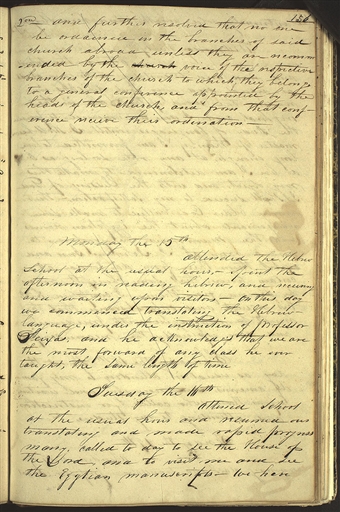 2nd and further resolved that no one 156
be ordained in the branches of said
church abroad unless they are recomm
ended by the voice of the respective
branches of the church to which they belong
to a general conference appointed by the
heads of the church, and from that conf-
erence receive their ordination—
Monday the 15th
attended the Hebrew
School at the usual hours— spent the
afternoon in reading hebrew, and receiving
and waiting upon visitors— on this day
we commenced translating the Hebrew-
language, under the instruction of Professor
Seixas, and he acknowledges that we are
the most forward of any class he ever
taught, the same length of time
Tuesday the 16th
attened School
at the usual hour and resumed our
translating and made rapid progress
many called to day to see the House of
the Lord and to visit me and see
the Egytian manuscripts— we have